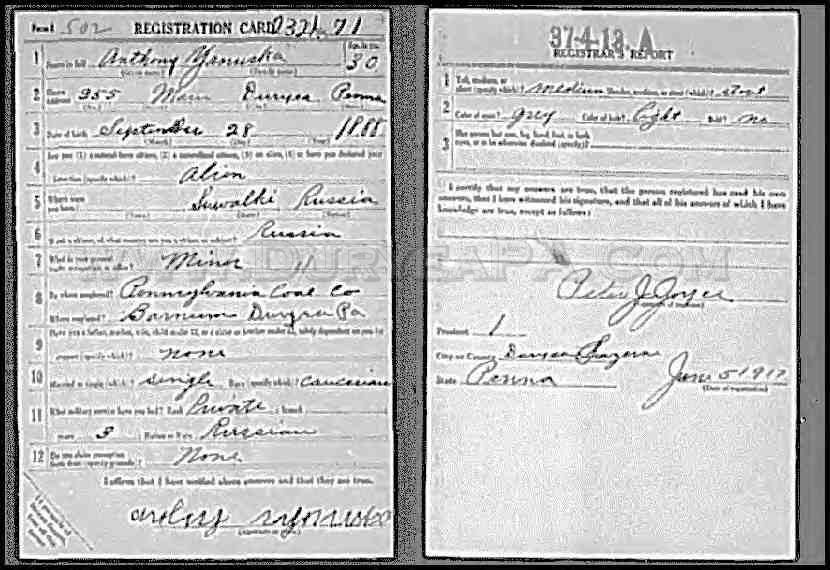 Form 1 502 REGISTRATION CARD 2321 71
1 Name in full Anthony Yanuska Age, in yrs. 30
(Given name) (Family name)
2 Home address 355 Main Duryea Penna
3 Date of birth September 28 1888
(Month) (Day) (Year)
4 Are you (1) a natural-born citizen, (2) a naturalized citizen, (3) an alien, (4) or have you declared your
intention (specify which)? Alien
5 Where were you born? Suwalki Russia
(Town) (State) (Nation)
6 If not a citizen, of what country are you a citizen or subject? Russia
7 What is your present trade, occupation, or office? Miner 11
8 By whom employed? Pennsylvania Coal Co
Where employed? Barnum Duryea Pa
9 Have you a father, mother, wife, child under 12, or a sister or brother under 12, solely dependent on you for
support (specify which)? None
10 Married or single (which)? Single Race (specify which)? Caucasian
11 What military service have you had? Rank Private ; branch
years 3 Nation or State Russian
12 Do you claim exemption from draft (specify grounds)? None
I affirm that I have verified above answers and that they are true.
(Signature or mark)
37-4-13. A
REGISTRAR'S REPORT
1 Tall, medium, or short (specify which)? Medium Slender, medium, or stout (which)? stout
2 Color of eyes? Grey Color of hair? Light Bald? No
3 Has person lost arm, leg, hand, foot, or both
eyes, or is he otherwise disabled (specify)?
I certify that my answers are true, that the person registered has read his own
answers, that I have witnessed his signature, and that all of his answers of which I have
knowledge are true, except as follows:
WWW.DURYEAPA.COM
Peter J. Joyce
(Signature of registrar)
Precinct 1
City or County Duryea Luzerne
State Penna June 5 1917
(Date of registration)